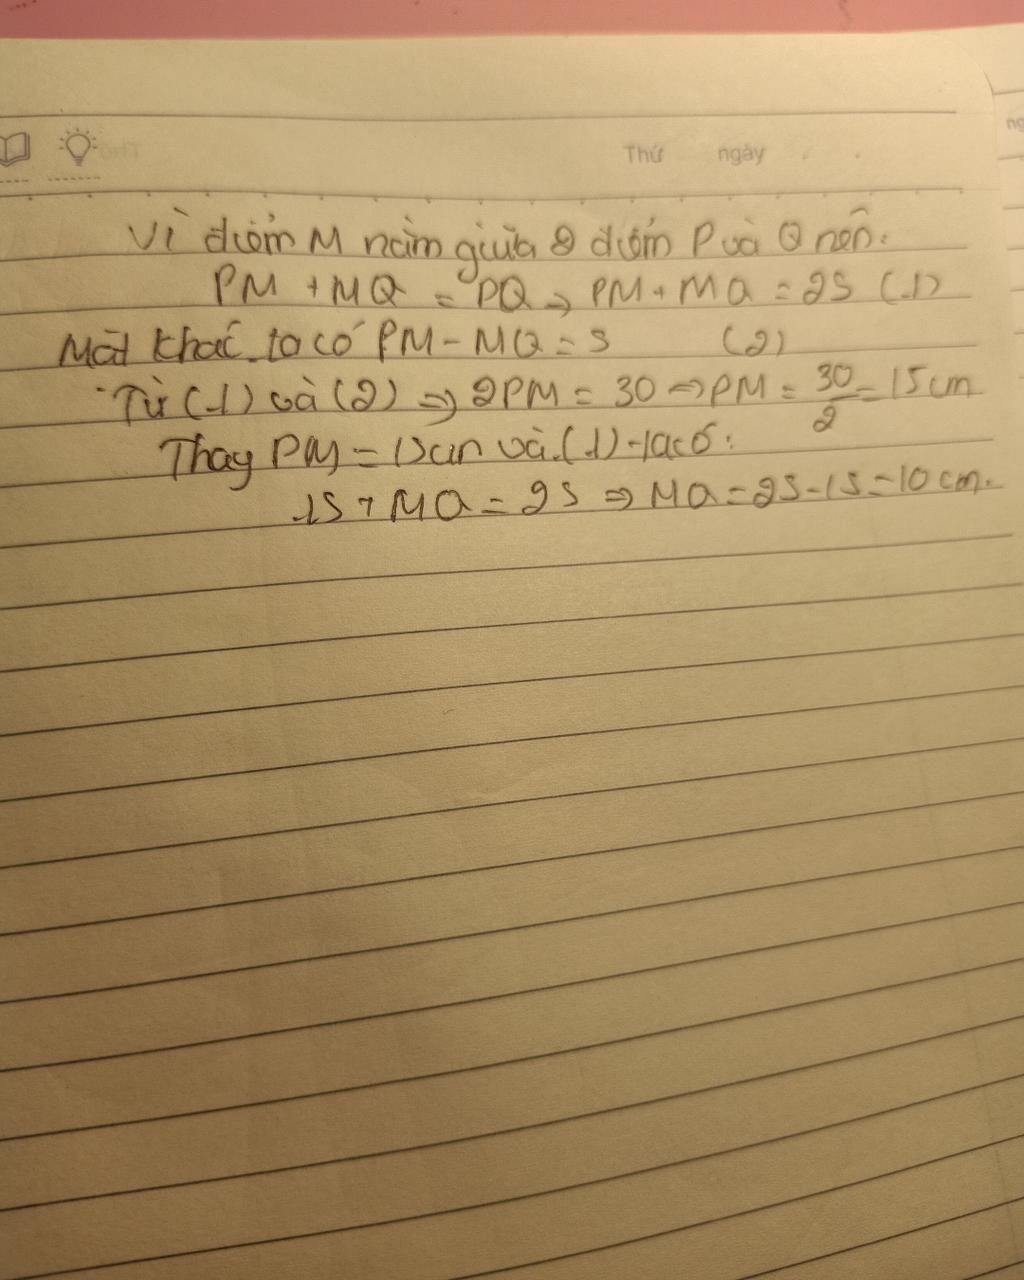 Thứ ngày
Vì điểm M nằm giữa 2 điểm P và Q nên:
PM + MQ = PQ ⇒ PM + MQ = 25 (1)
Mặt khác ta có PM - MQ = 5 (2)
Từ (1) và (2) ⇒ 2PM = 30 ⇒ PM = 30/2 = 15 cm
Thay PM = 15cm và (1) ta có:
15 + MQ = 25 ⇒ MQ = 25 - 15 = 10 cm.